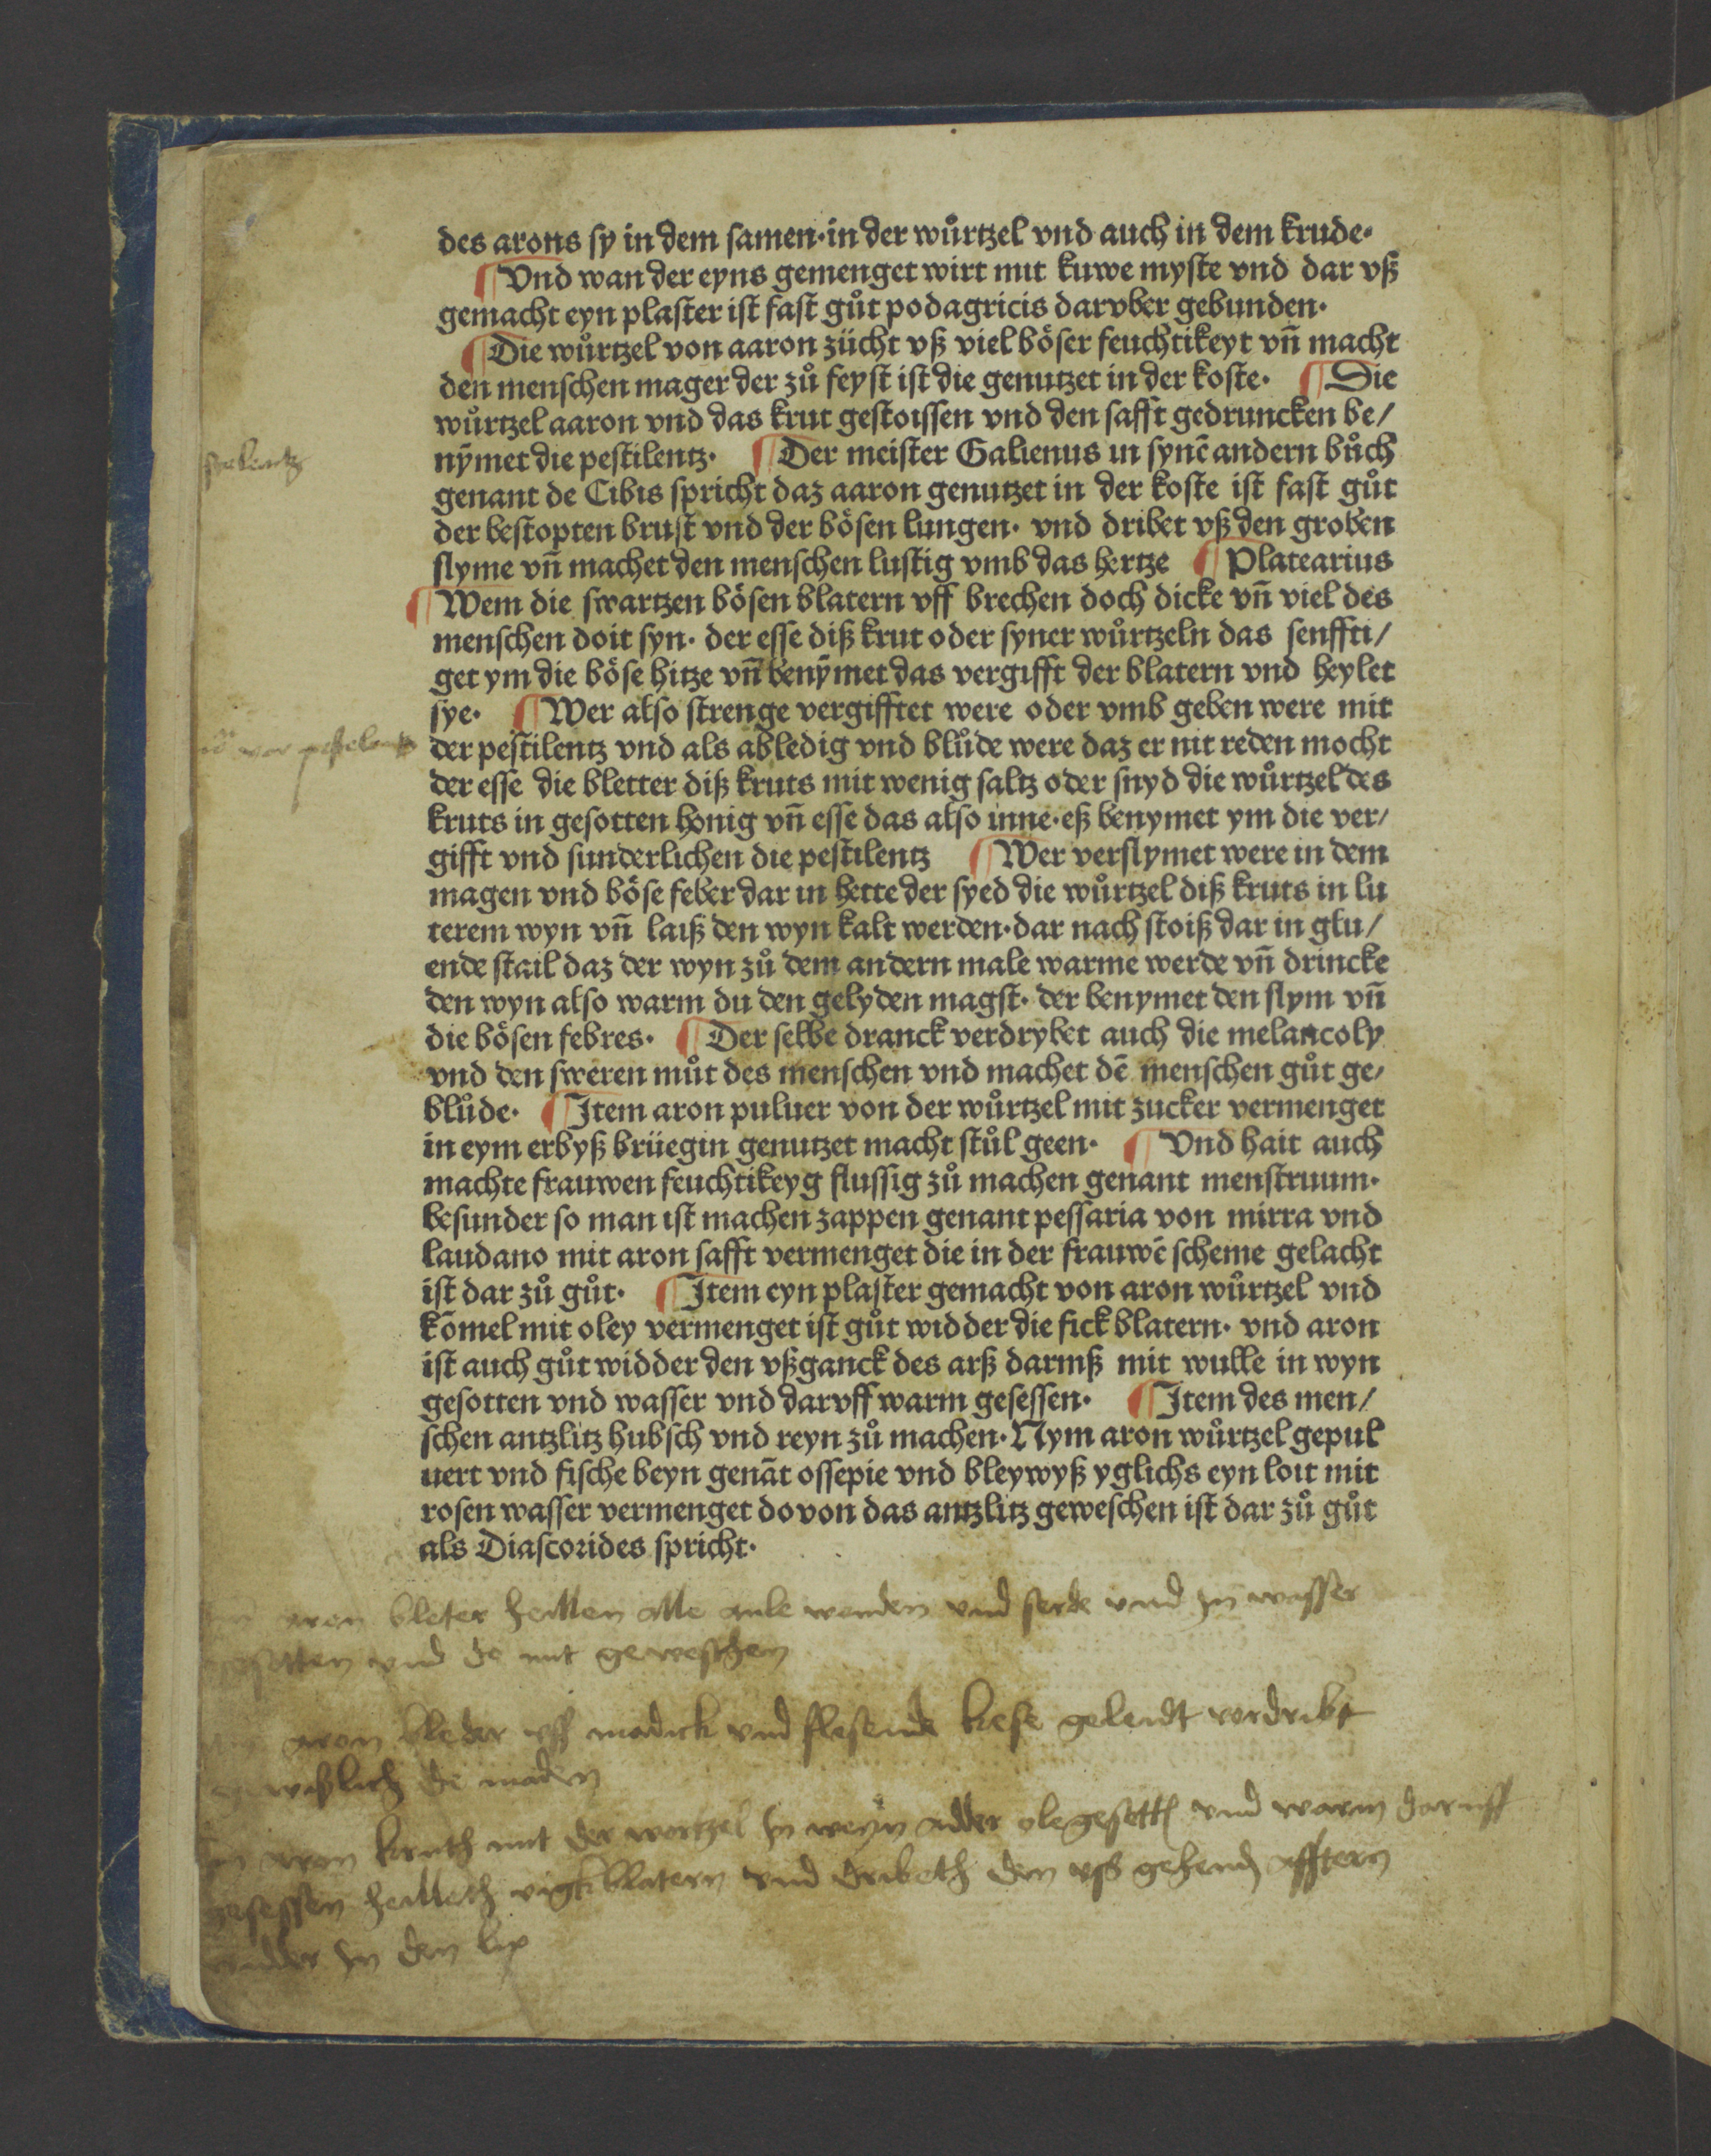 des arons sy in dem samen·in der wůrtzel vnd auch in dem krude·
¶Vnd wan der eyns gemenget wirt mit kuwe myste vnd dar vß
gemacht eyn plaster ist fast gůt podagricis darvber gebunden·
¶Die wůrtzel von aaron zücht vß viel böser feuchtikeyt vn̄ macht
den menschen mager der zů feyst ist die genutzet in der koste· ¶Die
wůrtzel aaron vnd das krut gestoissen vnd den safft gedruncken be/
nȳmet die pestilentz· ¶Der meister Galienus in synē andern bůch
genant de Cibis spricht daz aaron genutzet in der koste ist fast gůt
der bestopten brust vnd der bösen lungen· vnd dribet vß den groben
slyme vn̄ machet den menschen lustig vmb das hertze ¶Platearius
¶Wem die swartzen bösen blatern vff brechen doch dicke vn̄ viel des
menschen doit syn· der esse diß krut oder syner wůrtzeln das senffti/
get ym die böse hitze vn̄ benȳmet das vergifft der blatern vnd heylet
sye· ¶Wer also strenge vergifftet were oder vmb geben were mit
der pestilentz vnd als abledig vnd blůde were daz er nit reden mocht
der esse die bletter diß kruts mit wenig saltz oder snyd die wůrtzel des
kruts in gesotten honig vn̄ esse das also inne·eß benymet ym die ver/
gifft vnd sunderlichen die pestilentz ¶Wer verslymet were in dem
magen vnd böse feber dar in hette der syed die wůrtzel diß kruts in lu
terem wyn vn̄ laiß den wyn kalt werden·dar nach stoiß dar in glu/
ende stail daz der wyn zů dem andern male warme werde vn̄ drincke
den wyn also warm du den gelyden magst· der benymet den slym vn̄
die bösen febres· ¶Der selbe dranck verdrybet auch die melancoly
vnd den sweren můt des menschen vnd machet dē menschen gůt ge/
blůde· ¶Item aron puluer von der wůrtzel mit zucker vermenget
in eym erbyß brüegin genutzet macht stůl geen· ¶Vnd hait auch
machte frauwen feuchtikeyg flussig zů machen genant menstruum·
besunder so man ist machen zappen genant pessaria von mirra vnd
laudano mit aron safft vermenget die in der frauwē scheme gelacht
ist dar zů gůt· ¶Item eyn plaster gemacht von aron wůrtzel vnd
kōmel mit oley vermenget ist gůt widder die fick blatern· vnd aron
ist auch gůt widder den vßganck des arß darmß mit wulle in wyn
gesotten vnd wasser vnd darvff warm gesessen· ¶Item des men/
schen antzlitz hubsch vnd reyn zů machen·Nym aron wůrtzel gepul
uert vnd fische beyn genāt ossepie vnd bleywyß yglichs eyn loit mit
rosen wasser vermenget dovon das antzlitz geweschen ist dar zů gůt
als Diascorides spricht·
aron bleter heillen alle wonden vnd vnd in wasser
gesotten vnd do mit geweschen
aron bleder vff madick vnd kese geleidt vordribt
die maden
aron kruth mit der wortzel in weyn adder vnd warm daruff
gesessen heilleth vigkblatern vnd dribeth den vß afftern
widder in den